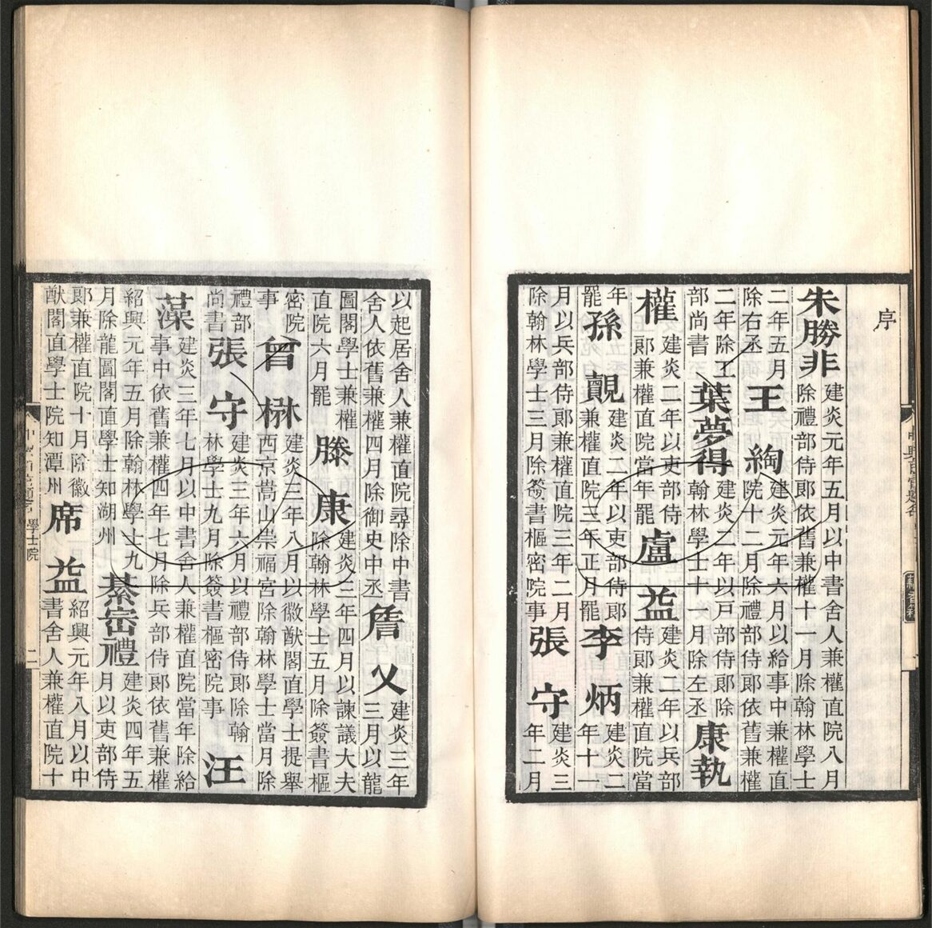 序
朱勝非 建炎元年五月以中書舍人兼權直院八月除禮部侍郎依舊兼權十一月除翰林學士
二年五月除右丞 王綯 建炎元年六月以給事中兼權直院十二月除禮部侍郎依舊兼權
二年除工部尚書 葉夢得 建炎二年以戶部侍郎除翰林學士十一月除左丞 康執
權 建炎二年以吏部侍郎兼權直院當年罷 盧益 建炎二年以兵部侍郎兼權直院當
年罷 孫覿 建炎二年以吏部侍郎兼權直院三年正月罷 李炳 建炎二年十一
月以兵部侍郎兼權直院三年二月除翰林學士三月除簽書樞密院事 張守 建炎三年二月
以起居舍人兼權直院尋除中書舍人依舊兼權四月除御史中丞 詹乂 建炎三年三月以龍
圖閣學士兼權直院六月罷 滕康 建炎三年四月以諫議大夫除翰林學士五月除簽書樞
密院事 曾楙 建炎三年八月以徽猷閣直學士提舉西京嵩山崇福宮除翰林學士當月除
禮部尚書 張守 建炎三年六月以禮部侍郎除翰林學士九月除簽書樞密院事 汪
藻 建炎三年七月以中書舍人兼權直院當年除給事中依舊兼權四年七月除兵部侍郎依舊兼權
紹興元年五月除翰林學士九月除龍圖閣直學士知湖州 綦崈禮 建炎四年五月以吏部侍
郎兼權直院十月除徽猷閣直學士院知潭州 席益 紹興元年八月以中書舍人兼權直院十
學士院
二